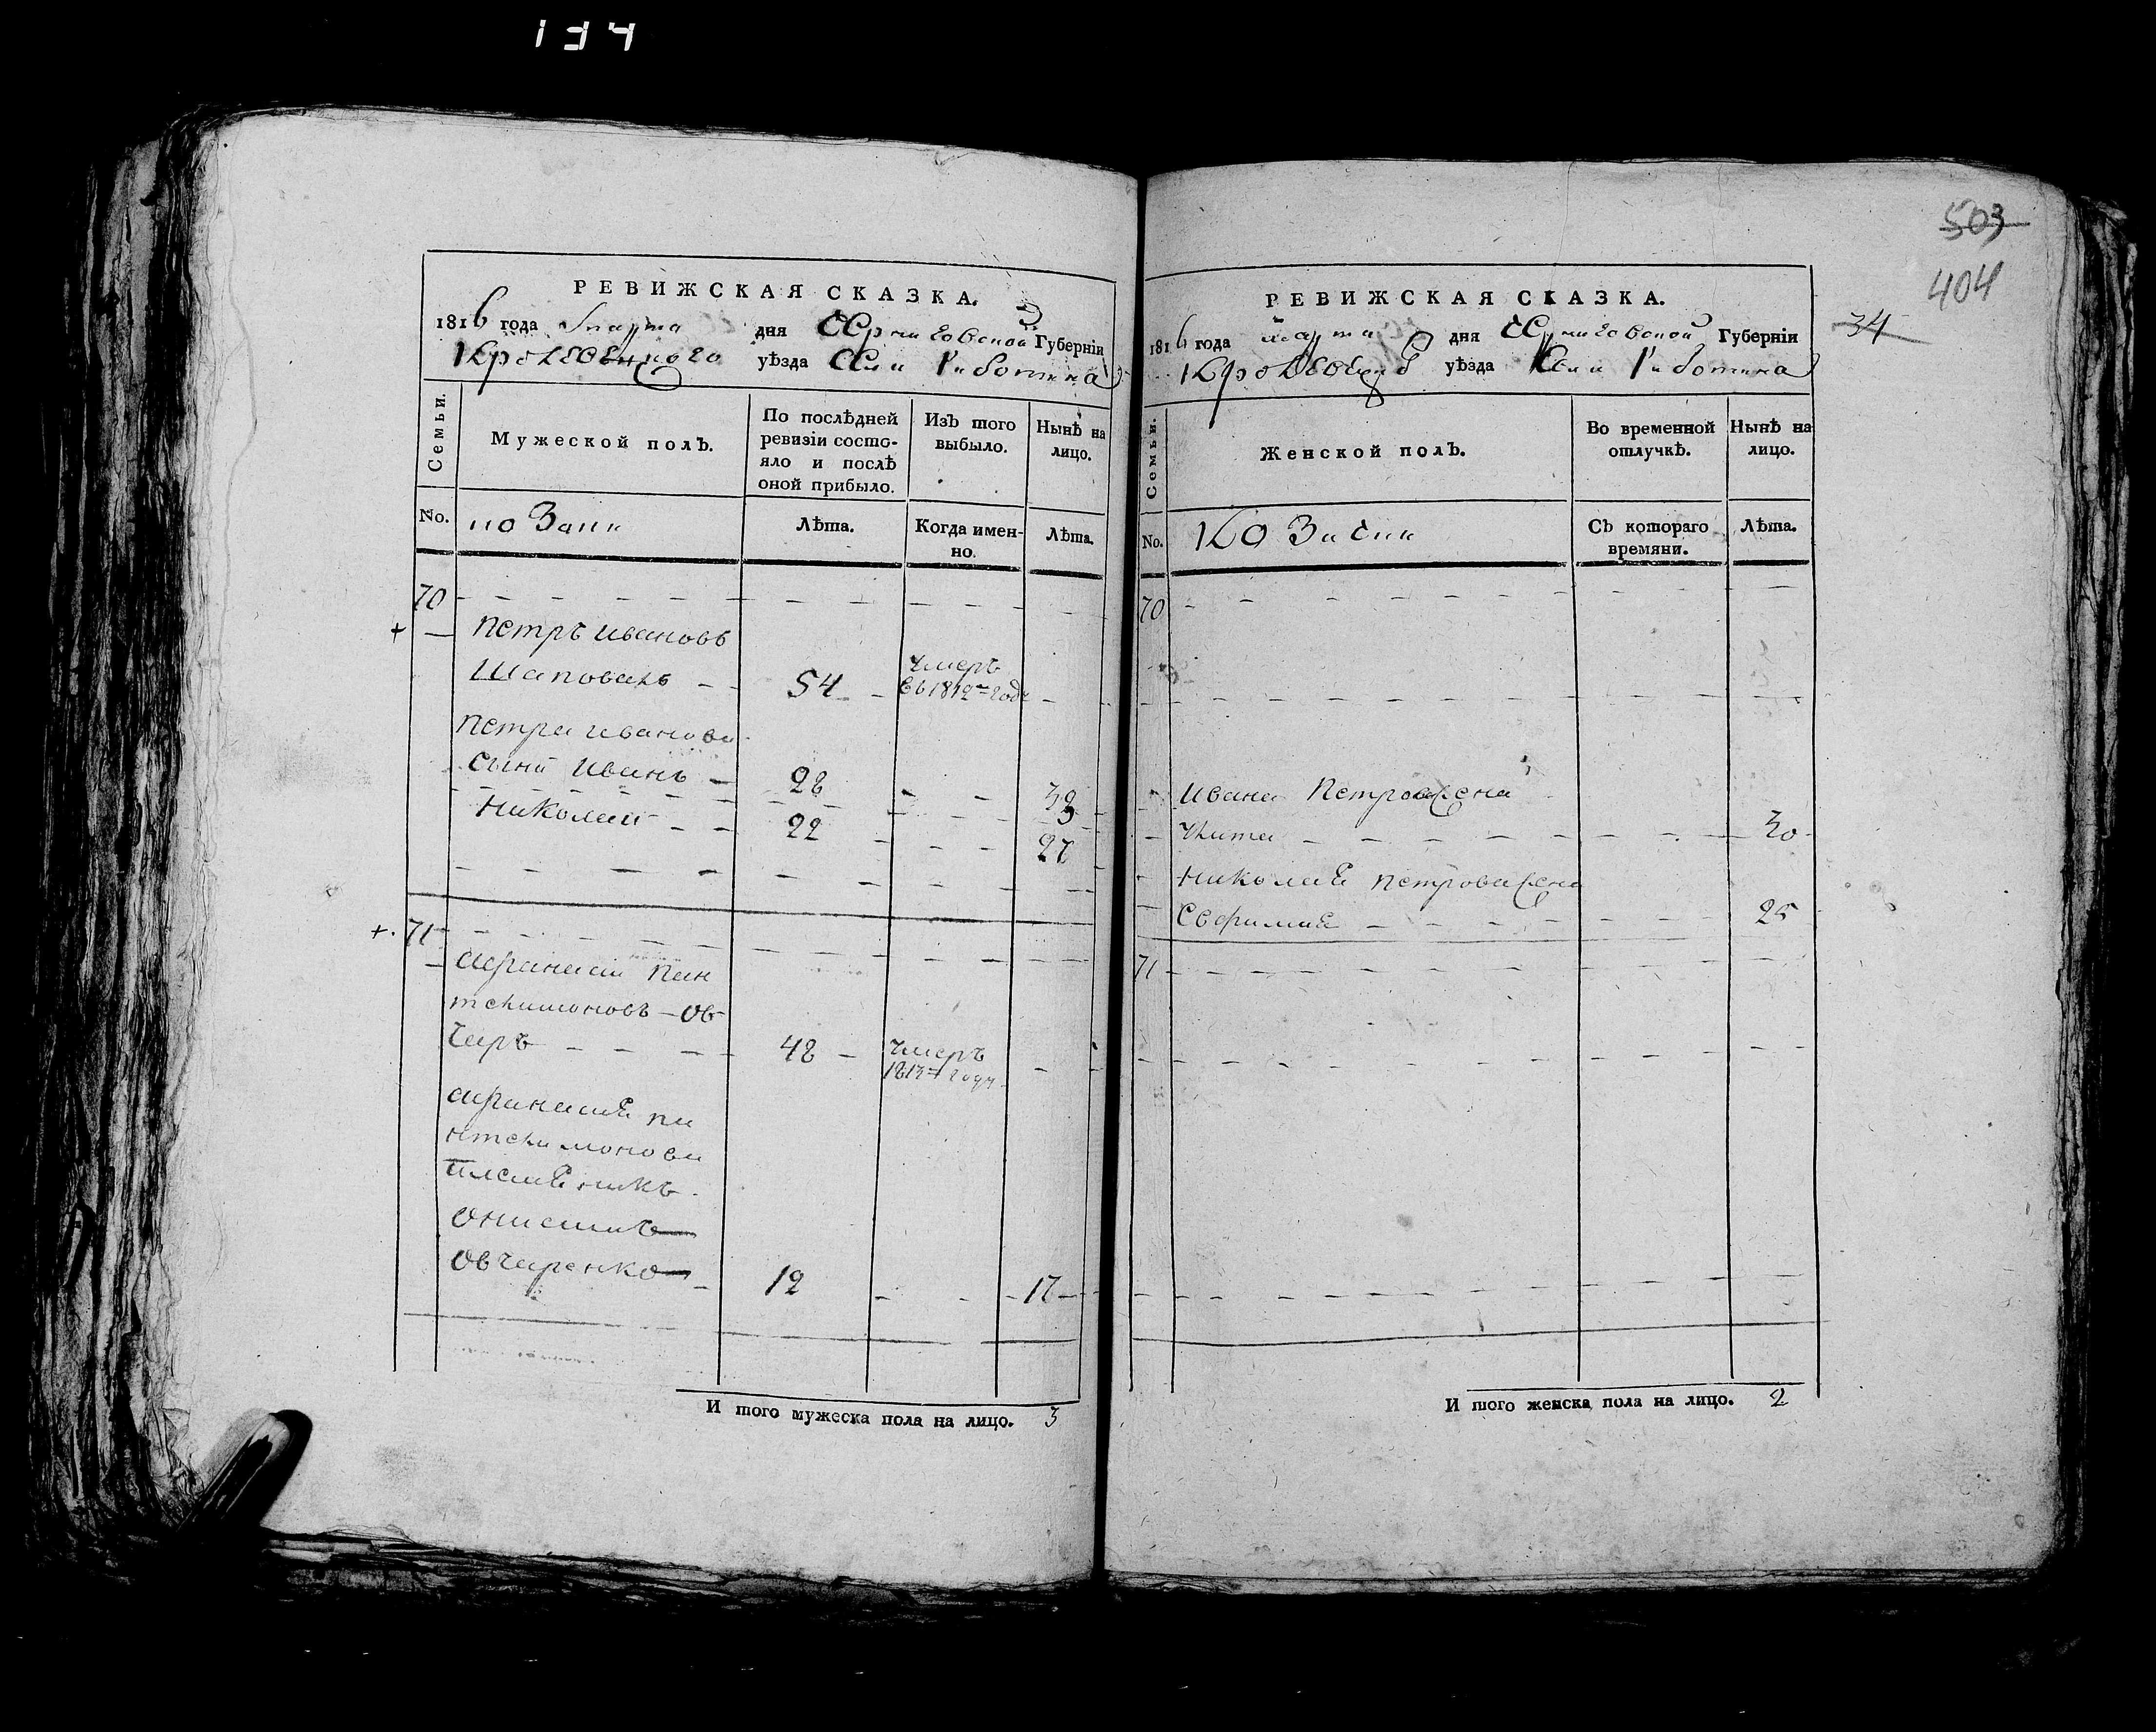 134
РЕВИЖСКАЯ СКАЗКА.
1816 года марта дня Черниговской Губерніи
Кролевецкого уѣзда Села
Семьи.
Мужеской полъ.
По послѣдней ревизіи состо-
яло и послѣ
оной прибыло.
Изъ того
выбыло.
Нынѣ на
лицо.
No.
Лѣта.
Когда имен-
но.
Лѣта.
70
Петръ Ивановъ
Шаповалъ 54 умеръ
въ 1812м годе
Петра Иванова
сыни Иванъ 28
Николай 22 27
71
Афанасий Пан
телимоновъ Ов
чаръ 48 умеръ
181 году
Афанасия Па
нтелимонова
племяникъ
Онисимъ
Овчаренко 12 17
И того мужеска пола на лицо. 3
503
404
34
РЕВИЖСКАЯ СКАЗКА.
1816 года марта дня Черниговской Губерніи
уѣзда Села
Семьи.
Женской полъ.
Во временной
отлучкѣ.
Нынѣ на
лицо.
No.
Съ котораго
времяни.
Лѣта.
70
Ивана Петрова жена
30
Николая Петрова жена
Евфимия 25
71
И того женска пола на лицо. 2